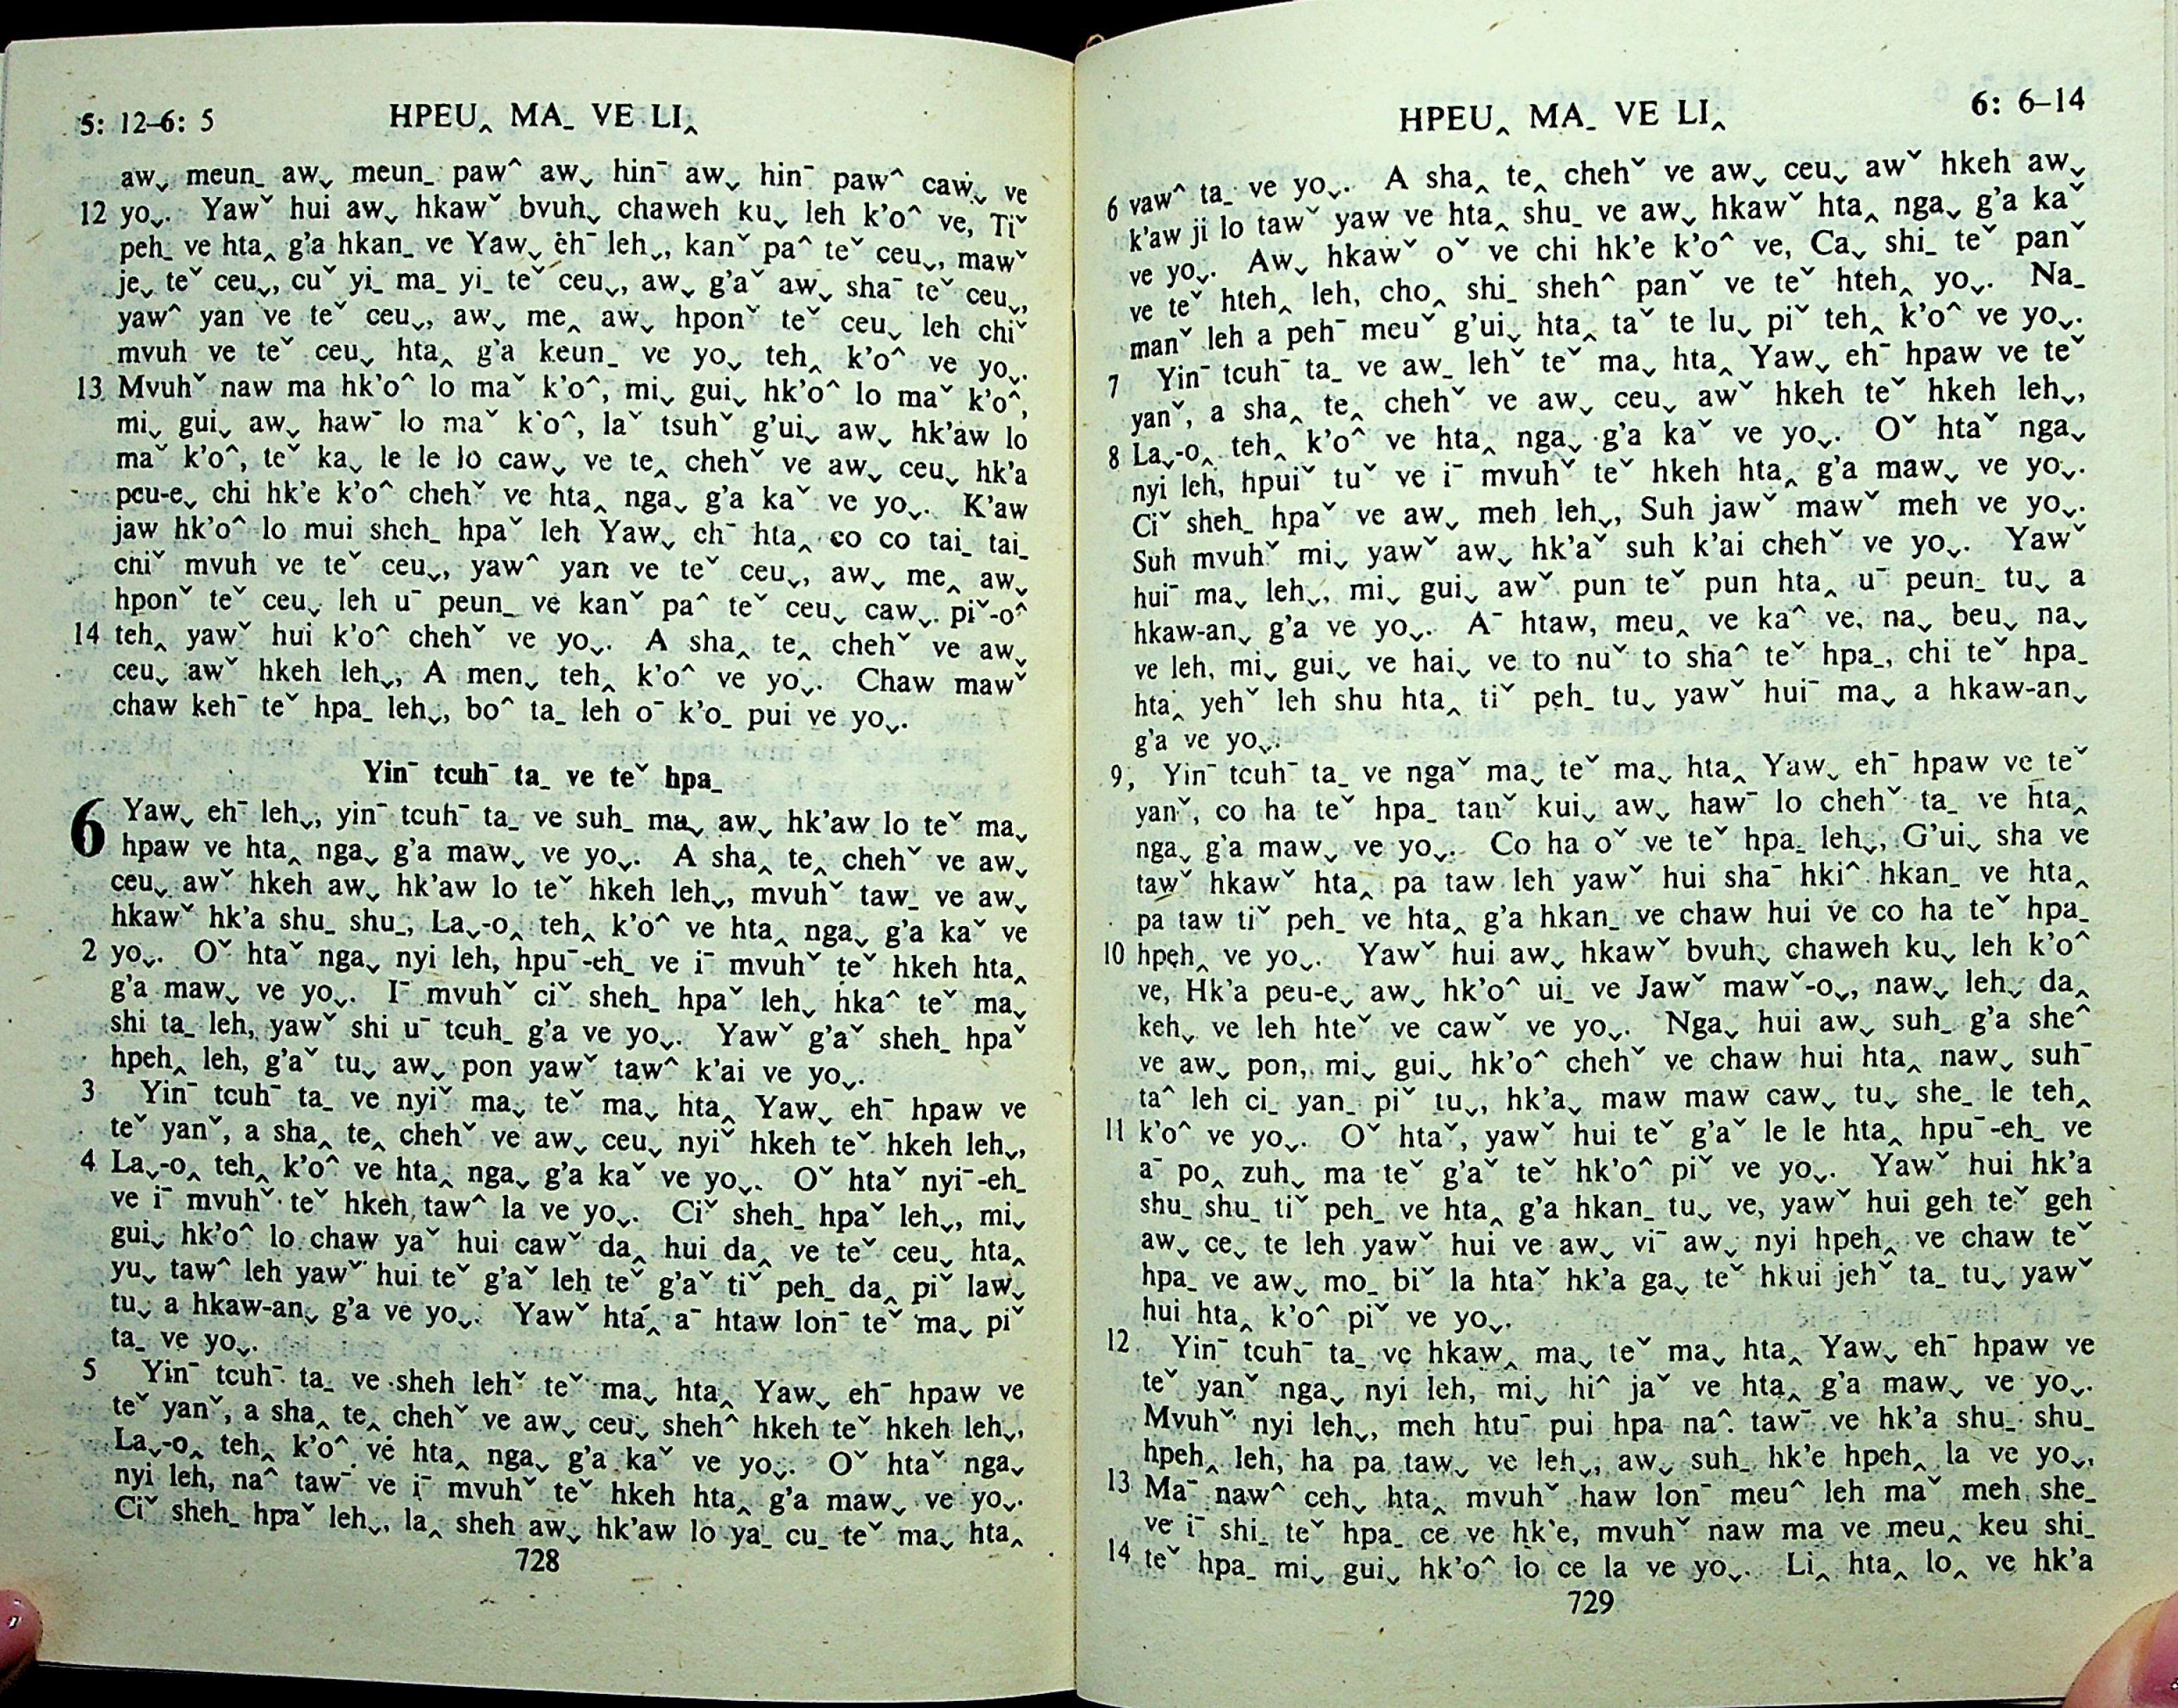 5: 12–6: 5 HPEU‸ MA_ VE LI‸
aw˯ meun_ aw˯ meun_ paw^ aw˯ hin¯ aw˯ hin¯ paw^ caw˯ ve
12 yo˯. Yawˇ hui aw˯ hkawˇ bvuh˯ chaweh ku˯ leh k'o^ ve, Tiˇ
peh_ ve hta‸ g'a hkan_ ve Yaw˯ eh¯ leh˯, kanˇ pa^ teˇ ceu˯, mawˇ
je˯ teˇ ceu˯, cuˇ yi_ ma_ yi_ teˇ ceu˯, aw˯ g'aˇ aw˯ sha¯ teˇ ceu˯,
yaw^ yan ve teˇ ceu˯, aw˯ me‸ aw˯ hponˇ teˇ ceu˯ leh chiˇ
mvuh ve teˇ ceu˯ hta‸ g'a keun_ ve yo˯ teh‸ k'o^ ve yo˯.
13 Mvuhˇ naw ma hk'o^ lo maˇ k'o^, mi˯ gui˯ hk'o^ lo maˇ k'o^,
mi˯ gui˯ aw˯ haw¯ lo maˇ k'o^, laˇ tsuhˇ g'ui˯ aw˯ hk'aw lo
maˇ k'o^, teˇ ka˯ le le lo caw˯ ve te‸ chehˇ ve aw˯ ceu˯ hk'a
peu-e˯ chi hk'e k'o^ chehˇ ve hta‸ nga˯ g'a kaˇ ve yo˯. K'aw
jaw hk'o^ lo mui sheh_ hpaˇ leh Yaw˯ eh¯ hta‸ co co tai_ tai_
chiˇ mvuh ve teˇ ceu˯, yaw^ yan ve teˇ ceu˯, aw˯ me‸ aw˯
hponˇ teˇ ceu˯ leh u¯ peun_ ve kanˇ pa^ teˇ ceu˯ caw˯ piˇ-o^
14 teh‸ yawˇ hui k'o^ chehˇ ve yo˯. A sha‸ te‸ chehˇ ve aw˯
ceu˯ awˇ hkeh leh˯, A men˯ teh‸ k'o^ ve yo˯. Chaw mawˇ
chaw keh¯ teˇ hpa_ leh˯, bo^ ta_ leh o¯ k'o_ pui ve yo˯.
Yin¯ tcuh¯ ta_ ve teˇ hpa_
6 Yaw˯ eh¯ leh˯, yin¯ tcuh¯ ta_ ve suh_ ma˯ aw˯ hk'aw lo teˇ ma˯
hpaw ve hta‸ nga˯ g'a maw˯ ve yo˯. A sha‸ te‸ chehˇ ve aw˯
ceu˯ awˇ hkeh aw˯ hk'aw lo teˇ hkeh leh˯, mvuhˇ taw_ ve aw˯
hkawˇ hk'a shu_ shu_, La˯-o‸ teh‸ k'o^ ve hta‸ nga˯ g'a kaˇ ve
2 yo˯. Oˇ htaˇ nga˯ nyi leh, hpu¯-eh_ ve i¯ mvuhˇ teˇ hkeh hta‸
g'a maw˯ ve yo˯. I¯ mvuhˇ ciˇ sheh_ hpaˇ leh˯ hka^ teˇ ma˯
shi ta_ leh, yawˇ shi u¯ tcuh_ g'a ve yo˯. Yawˇ g'aˇ sheh_ hpaˇ
hpeh‸ leh, g'aˇ tu˯ aw˯ pon yawˇ taw^ k'ai ve yo˯.
3 Yin¯ tcuh¯ ta_ ve nyiˇ ma˯ teˇ ma˯ hta‸ Yaw˯ eh¯ hpaw ve
teˇ yanˇ, a sha‸ te‸ chehˇ ve aw˯ ceu˯ nyiˇ hkeh teˇ hkeh leh˯,
4 La˯-o‸ teh‸ k'o^ ve hta‸ nga˯ g'a kaˇ ve yo˯. Oˇ htaˇ nyi¯-eh_
ve i¯ mvuhˇ teˇ hkeh taw^ la ve yo˯. Ciˇ sheh_ hpaˇ leh˯, mi˯
gui˯ hk'o^ lo chaw yaˇ hui cawˇ da‸ hui da‸ ve teˇ ceu˯ hta‸
yu˯ taw^ leh yawˇ hui teˇ g'aˇ leh teˇ g'aˇ tiˇ peh_ da‸ piˇ law˯
tu˯ a hkaw-an˯ g'a ve yo˯. Yawˇ hta‸ a¯ htaw lon¯ teˇ ma˯ piˇ
ta_ ve yo˯.
5 Yin¯ tcuh¯ ta_ ve sheh lehˇ teˇ ma˯ hta‸ Yaw˯ eh¯ hpaw ve
teˇ yanˇ, a sha‸ te‸ chehˇ ve aw˯ ceu˯ sheh^ hkeh teˇ hkeh leh˯,
La˯-o‸ teh‸ k'o^ ve hta‸ nga˯ g'a kaˇ ve yo˯. Oˇ htaˇ nga˯
nyi leh, na^ taw¯ ve i¯ mvuhˇ teˇ hkeh hta‸ g'a maw˯ ve yo˯.
Ciˇ sheh_ hpaˇ leh˯, la‸ sheh aw˯ hk'aw lo ya_ cu_ teˇ ma˯ hta‸
728
HPEU‸ MA_ VE LI‸ 6: 6–14
6 vaw^ ta_ ve yo˯. A sha‸ te‸ chehˇ ve aw˯ ceu˯ awˇ hkeh aw˯
k'aw ji lo tawˇ yaw ve hta‸ shu_ ve aw˯ hkawˇ hta‸ nga˯ g'a kaˇ
ve yo˯. Aw˯ hkawˇ oˇ ve chi hk'e k'o^ ve, Ca˯ shi_ teˇ panˇ
ve teˇ hteh‸ leh, cho‸ shi_ sheh^ panˇ ve teˇ hteh‸ yo˯. Na_
manˇ leh a peh¯ meuˇ g'ui˯ hta‸ taˇ te lu˯ piˇ teh‸ k'o^ ve yo˯.
7 Yin¯ tcuh¯ ta_ ve aw_ lehˇ teˇ ma˯ hta‸ Yaw˯ eh¯ hpaw ve teˇ
yanˇ, a sha‸ te‸ chehˇ ve aw˯ ceu˯ awˇ hkeh teˇ hkeh leh˯,
8 La˯-o‸ teh‸ k'o^ ve hta‸ nga˯ g'a kaˇ ve yo˯. Oˇ htaˇ nga˯
nyi leh, hpuiˇ tuˇ ve i¯ mvuhˇ teˇ hkeh hta‸ g'a maw˯ ve yo˯.
Ciˇ sheh_ hpaˇ ve aw˯ meh leh˯, Suh jawˇ mawˇ meh ve yo˯.
Suh mvuhˇ mi˯ yawˇ aw˯ hk'aˇ suh k'ai chehˇ ve yo˯. Yawˇ
hui¯ ma˯ leh˯, mi˯ gui˯ awˇ pun teˇ pun hta‸ u¯ peun_ tu˯ a
hkaw-an˯ g'a ve yo˯. A¯ htaw, meu‸ ve ka^ ve, na˯ beu˯ na˯
ve leh, mi˯ gui˯ ve hai˯ ve to nuˇ to sha^ teˇ hpa_, chi teˇ hpa_
hta‸ yehˇ leh shu hta‸ tiˇ peh_ tu˯ yawˇ hui¯ ma˯ a hkaw-an˯
g'a ve yo˯.
9 Yin¯ tcuh¯ ta_ ve ngaˇ ma˯ teˇ ma˯ hta‸ Yaw˯ eh¯ hpaw ve teˇ
yanˇ, co ha teˇ hpa_ tanˇ kui˯ aw˯ haw¯ lo chehˇ ta_ ve hta‸
nga˯ g'a maw˯ ve yo˯. Co ha oˇ ve teˇ hpa_ leh˯, G'ui˯ sha ve
tawˇ hkawˇ hta‸ pa taw leh yawˇ hui sha¯ hki^ hkan_ ve hta‸
pa taw tiˇ peh_ ve hta‸ g'a hkan_ ve chaw hui ve co ha teˇ hpa_
10 hpeh‸ ve yo˯. Yawˇ hui aw˯ hkawˇ bvuh˯ chaweh ku˯ leh k'o^
ve, Hk'a peu-e˯ aw˯ hk'o^ ui_ ve Jawˇ mawˇ-o˯, naw˯ leh˯ da‸
keh˯ ve leh hteˇ ve cawˇ ve yo˯. Nga˯ hui aw˯ suh_ g'a she^
ve aw˯ pon, mi˯ gui˯ hk'o^ chehˇ ve chaw hui hta‸ naw˯ suh¯
ta^ leh ci_ yan_ piˇ tu˯, hk'a˯ maw maw caw˯ tu˯ she_ le teh‸
11 k'o^ ve yo˯. Oˇ htaˇ, yawˇ hui teˇ g'aˇ le le hta‸ hpu¯-eh_ ve
a¯ po‸ zuh˯ ma teˇ g'aˇ teˇ hk'o^ piˇ ve yo˯. Yawˇ hui hk'a
shu_ shu_ tiˇ peh_ ve hta‸ g'a hkan_ tu˯ ve, yawˇ hui geh teˇ geh
aw˯ ce˯ te leh yawˇ hui ve aw˯ vi¯ aw˯ nyi hpeh‸ ve chaw teˇ
hpa_ ve aw˯ mo_ biˇ la htaˇ hk'a ga˯ teˇ hkui jehˇ ta_ tu˯ yawˇ
hui hta‸ k'o^ piˇ ve yo˯.
12 Yin¯ tcuh¯ ta_ ve hkaw‸ ma˯ teˇ ma˯ hta‸ Yaw˯ eh¯ hpaw ve
teˇ yanˇ nga˯ nyi leh, mi˯ hi^ jaˇ ve hta‸ g'a maw˯ ve yo˯.
Mvuhˇ nyi leh˯, meh htu¯ pui hpa na^ taw¯ ve hk'a shu_ shu_
hpeh‸ leh, ha pa taw˯ ve leh˯, aw˯ suh_ hk'e hpeh‸ la ve yo˯,
13 Ma¯ naw^ ceh˯ hta‸ mvuhˇ haw lon¯ meu^ leh maˇ meh she_
ve i¯ shi_ teˇ hpa_ ce ve hk'e, mvuhˇ naw ma ve meu‸ keu shi_
14 teˇ hpa_ mi˯ gui˯ hk'o^ lo ce la ve yo˯. Li‸ hta‸ lo‸ ve hk'a
729